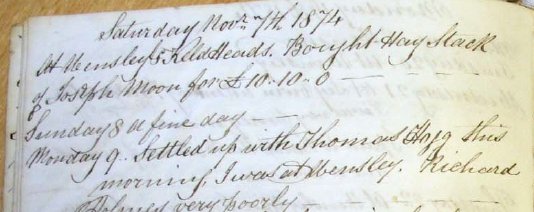 Saturday Novr. 7th 1874
At Hensley & Keldheads. Bought Hay Stack
of Joseph Moon for £10-10-0 — — — —
Sunday 8 a fine day — —
Monday 9.. Settled up with Thomas Hogg this
morning, I was at Hensley. Richard
Holmes very poorly